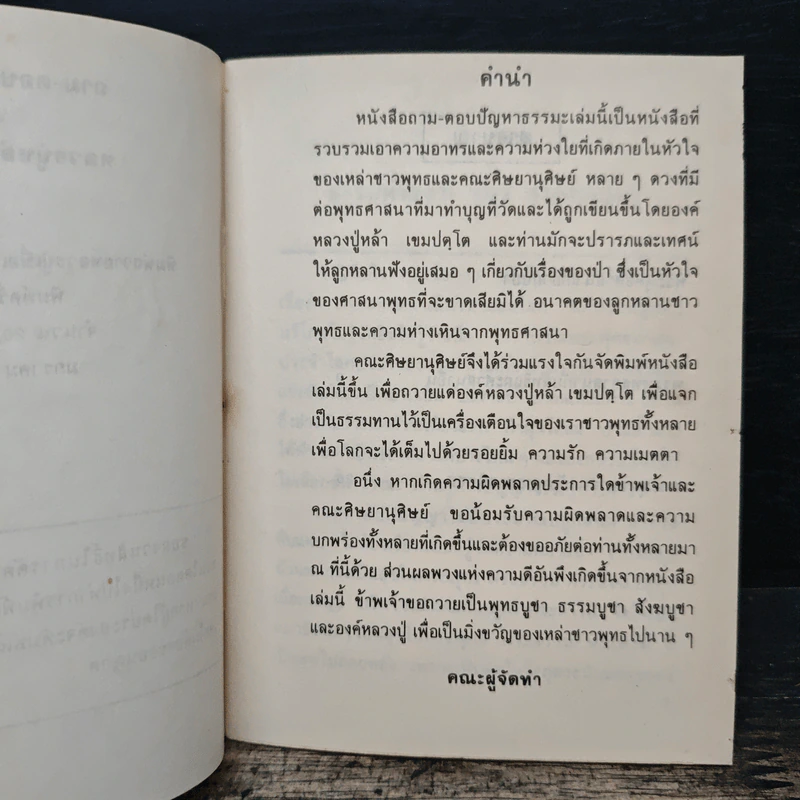 คำนำ
หนังสือถาม-ตอบปัญหาธรรมะเล่มนี้เป็นหนังสือที่
รวบรวมเอาความอาทรและความห่วงใยที่เกิดภายในหัวใจ
ของเหล่าชาวพุทธและคณะศิษยานุศิษย์ หลาย ๆ ดวงที่มี
ต่อพุทธศาสนาที่มาทำบุญที่วัดและได้ถูกเขียนขึ้นโดยองค์
หลวงปู่หล้า เขมปตฺโต และท่านมักจะปรารภและเทศน์
ให้ลูกหลานฟังอยู่เสมอ ๆ เกี่ยวกับเรื่องของป่า ซึ่งเป็นหัวใจ
ของศาสนาพุทธที่จะขาดเสียมิได้ อนาคตของลูกหลานชาว
พุทธและความห่างเหินจากพุทธศาสนา
คณะศิษยานุศิษย์จึงได้ร่วมแรงใจกันจัดพิมพ์หนังสือ
เล่มนี้ขึ้น เพื่อถวายแด่องค์หลวงปู่หล้า เขมปตฺโต เพื่อแจก
เป็นธรรมทานไว้เป็นเครื่องเตือนใจของเราชาวพุทธทั้งหลาย
เพื่อโลกจะได้เต็มไปด้วยรอยยิ้ม ความรัก ความเมตตา
อนึ่ง หากเกิดความผิดพลาดประการใดข้าพเจ้าและ
คณะศิษยานุศิษย์ ขอน้อมรับความผิดพลาดและความ
บกพร่องทั้งหลายที่เกิดขึ้นและต้องขออภัยต่อท่านทั้งหลายมา
ณ ที่นี้ด้วย ส่วนผลพวงแห่งความดีอันพึงเกิดขึ้นจากหนังสือ
เล่มนี้ ข้าพเจ้าขอถวายเป็นพุทธบูชา ธรรมบูชา สังฆบูชา
และองค์หลวงปู่ เพื่อเป็นมิ่งขวัญของเหล่าชาวพุทธไปนาน ๆ
คณะผู้จัดทำ